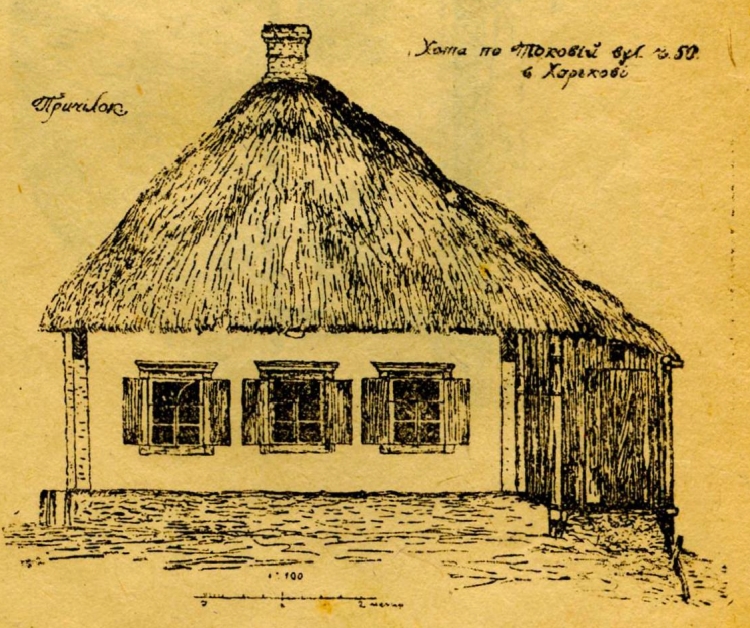 Хата по Токовій вул. ч. 50.
в Харькові
Причілок
1:100
2 метри